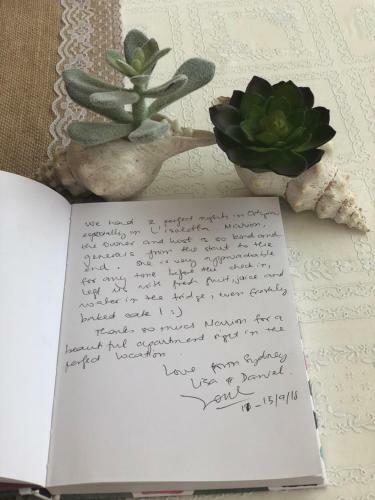 We had 2 perfect nights in
especially in L'isoletta Marion,
the owner and host is so kind and
generous from the start to the
end. She is very approachable
for any time before the check in,
left us with fresh fruit, juice and
water in the fridge, even freshly
baked cake! :)
Thanks so much Marion for a
beautiful apartment right in the
perfect location.
Love from Sydney
Lisa & Daniel.
15/9/18